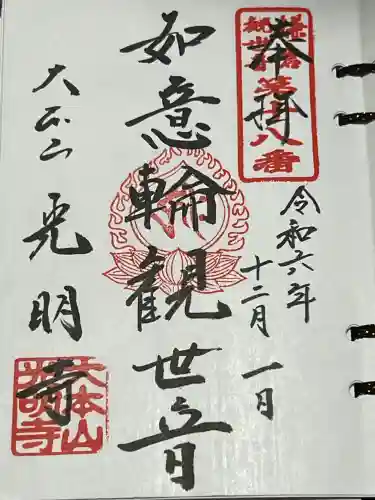 奉拝
鎌倉
観世音
第十八番
令和六年
十二月一日
如意輪観世音
大本山
光明寺
大本山
光明寺